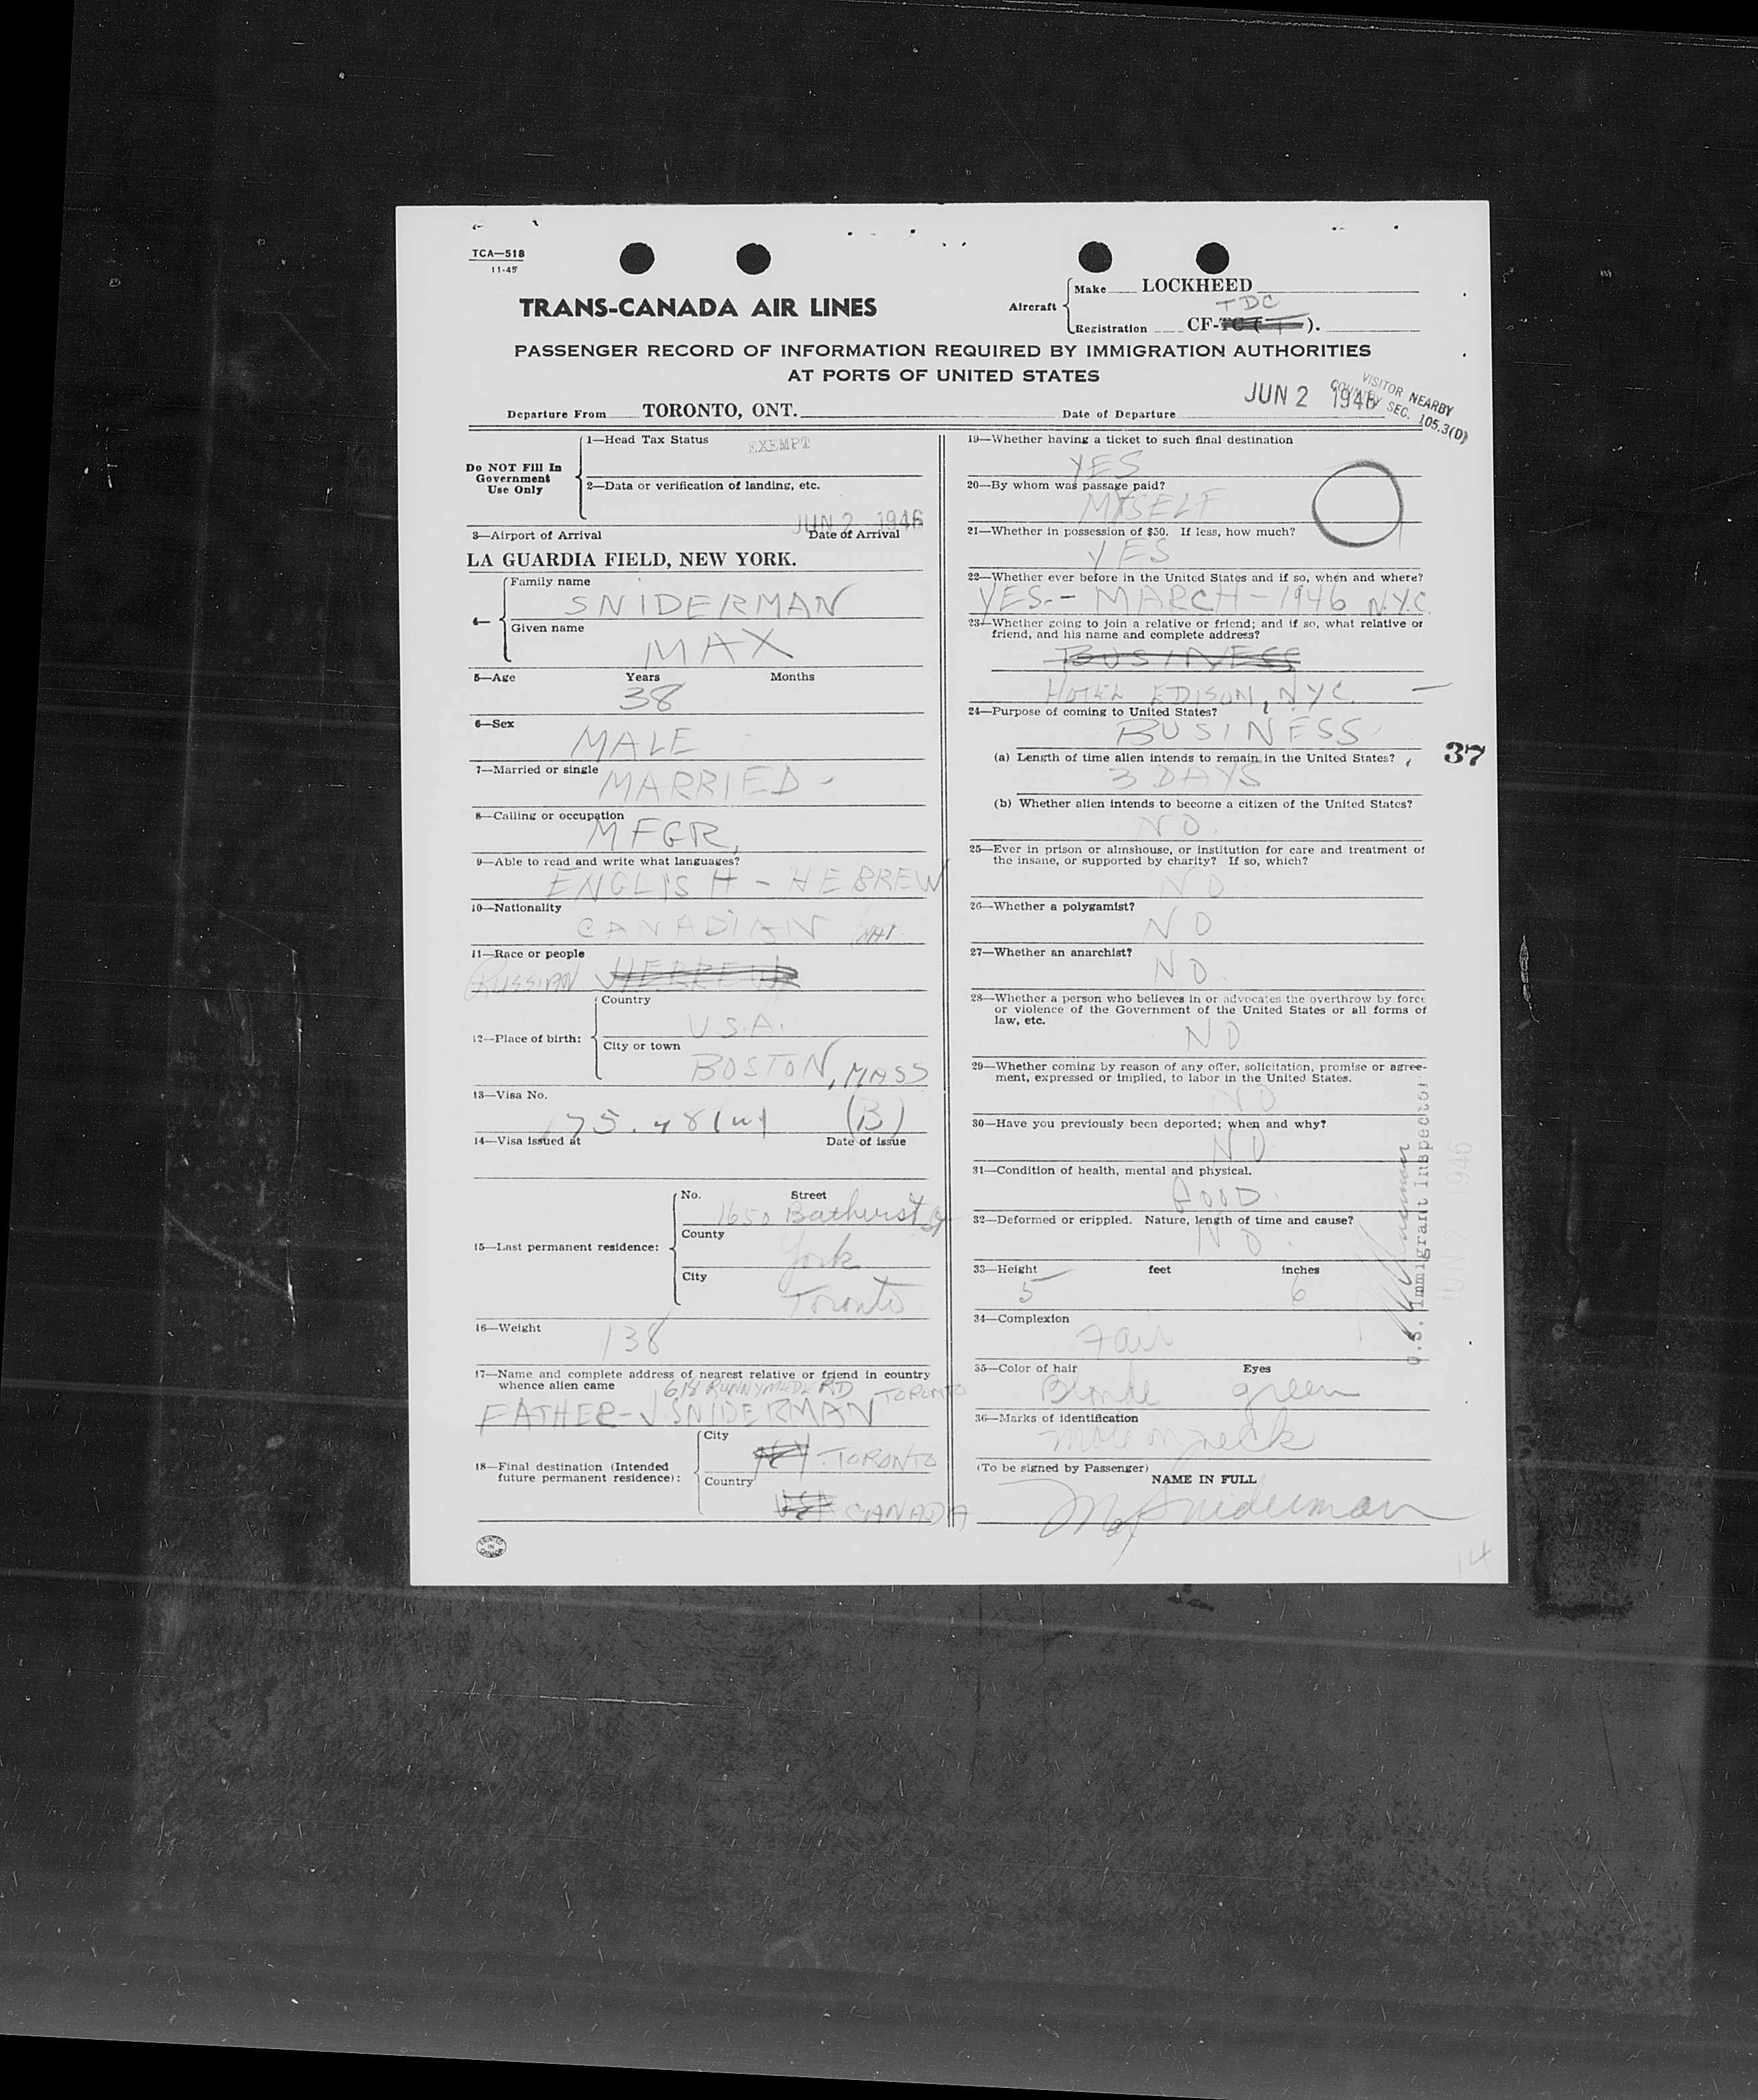 TCA—518
11-45
TRANS-CANADA AIR LINES
Aircraft
Make LOCKHEED
TDC
Registration CF-TC ( T ).
PASSENGER RECORD OF INFORMATION REQUIRED BY IMMIGRATION AUTHORITIES
AT PORTS OF UNITED STATES
Departure From TORONTO, ONT. Date of Departure JUN 2 1946
VISITOR NEARBY
COUNTRY SEC. 105.3(D)
Do NOT Fill In
Government
Use Only
1—Head Tax Status EXEMPT
2—Data or verification of landing, etc.
JUN 2 1946
3—Airport of Arrival Date of Arrival
LA GUARDIA FIELD, NEW YORK.
4—
Family name
SNIDERMAN
Given name
MAX
5—Age Years Months
38
6—Sex
MALE
7—Married or single
MARRIED -
8—Calling or occupation
MFGR,
9—Able to read and write what languages?
ENGLISH - HEBREW
10—Nationality
CANADIAN NAT.
11—Race or people
RUSSIAN HEBREW
12—Place of birth:
Country
U.S.A.
City or town
BOSTON, MASS
13—Visa No.
(B)
14—Visa issued at Date of issue
15—Last permanent residence:
No. Street
1650 Bathurst St
County
York
City
Toronto
16—Weight
138
17—Name and complete address of nearest relative or friend in country
whence alien came
618 RUNNYMEDE RD TORONTO
FATHER - J. SNIDERMAN
18—Final destination (Intended
future permanent residence):
City
NY. TORONTO
Country
USA CANADA
PRINTED
IN
CANADA
19—Whether having a ticket to such final destination
YES
20—By whom was passage paid?
MYSELF
21—Whether in possession of $50. If less, how much?
YES
22—Whether ever before in the United States and if so, when and where?
YES. - MARCH - 1946 N.Y.C.
23—Whether going to join a relative or friend; and if so, what relative or
friend, and his name and complete address?
BUSINESS
HOTEL EDISON, NYC. —
24—Purpose of coming to United States?
BUSINESS
(a) Length of time alien intends to remain in the United States?
3 DAYS
37
(b) Whether alien intends to become a citizen of the United States?
NO.
25—Ever in prison or almshouse, or institution for care and treatment of
the insane, or supported by charity? If so, which?
NO
26—Whether a polygamist?
NO
27—Whether an anarchist?
NO.
28—Whether a person who believes in or advocates the overthrow by force
or violence of the Government of the United States or all forms of
law, etc.
NO
29—Whether coming by reason of any offer, solicitation, promise or agree-
ment, expressed or implied, to labor in the United States.
NO
30—Have you previously been deported; when and why?
NO
31—Condition of health, mental and physical.
GOOD.
32—Deformed or crippled. Nature, length of time and cause?
NO.
33—Height feet inches
5 6
34—Complexion
Fair
35—Color of hair Eyes
Blonde green
36—Marks of identification
mole on neck
(To be signed by Passenger)
NAME IN FULL
Max Sniderman
U.S. Immigrant Inspector
JUN 2 1946
14